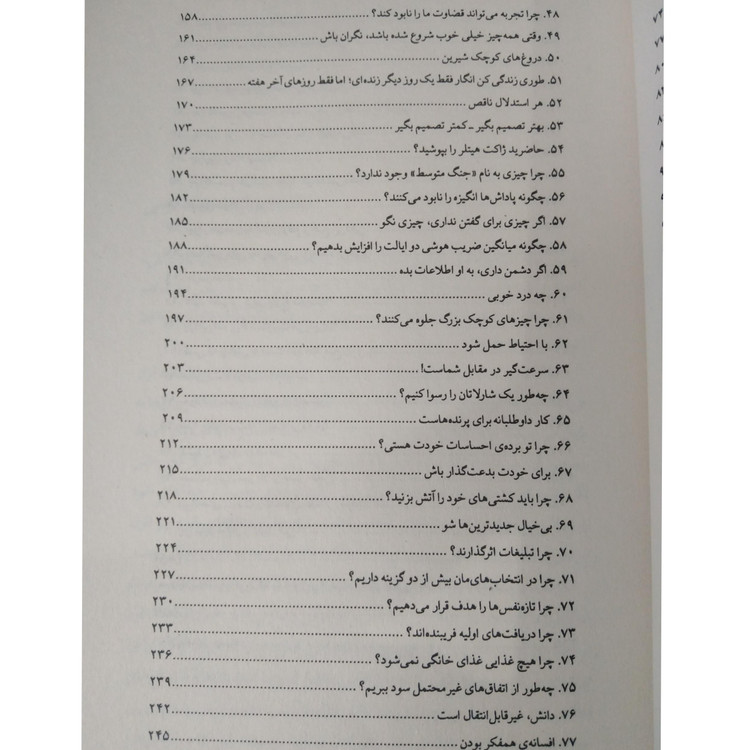 ۴۸. چرا تجربه می‌تواند قضاوت ما را نابود کند؟ ۱۵۸
۴۹. وقتی همه‌چیز خیلی خوب شروع شده باشد، نگران باش ۱۶۱
۵۰. دروغ‌های کوچک شیرین ۱۶۴
۵۱. طوری زندگی کن انگار فقط یک روز دیگر زنده‌ای؛ اما فقط روزهای آخر هفته ۱۶۷
۵۲. هر استدلال ناقص ۱۷۰
۵۳. بهتر تصمیم بگیر ـ کمتر تصمیم بگیر ۱۷۳
۵۴. حاضرید ژاکت هیتلر را بپوشید؟ ۱۷۶
۵۵. چرا چیزی به نام «جنگ متوسط» وجود ندارد؟ ۱۷۹
۵۶. چگونه پاداش‌ها انگیزه را نابود می‌کنند؟ ۱۸۲
۵۷. اگر چیزی برای گفتن نداری، چیزی نگو ۱۸۵
۵۸. چگونه میانگین ضریب هوشی دو ایالت را افزایش بدهیم؟ ۱۸۸
۵۹. اگر دشمن داری، به او اطلاعات بده ۱۹۱
۶۰. چه درد خوبی ۱۹۴
۶۱. چرا چیزهای کوچک بزرگ جلوه می‌کنند؟ ۱۹۷
۶۲. با احتیاط حمل شود ۲۰۰
۶۳. سرعت‌گیر در مقابل شماست! ۲۰۳
۶۴. چه‌طور یک شارلاتان را رسوا کنیم؟ ۲۰۶
۶۵. کار داوطلبانه برای پرنده‌هاست ۲۰۹
۶۶. چرا تو برده‌ی احساسات خودت هستی؟ ۲۱۲
۶۷. برای خودت بدعت‌گذار باش ۲۱۵
۶۸. چرا باید کشتی‌های خود را آتش بزنید؟ ۲۱۸
۶۹. بی‌خیال جدیدترین‌ها شو ۲۲۱
۷۰. چرا تبلیغات اثرگذارند؟ ۲۲۴
۷۱. چرا در انتخاب‌های‌مان بیش از دو گزینه داریم؟ ۲۲۷
۷۲. چرا تازه‌نفس‌ها را هدف قرار می‌دهیم؟ ۲۳۰
۷۳. چرا دریافت‌های اولیه فریبنده‌اند؟ ۲۳۳
۷۴. چرا هیچ غذایی غذای خانگی نمی‌شود؟ ۲۳۶
۷۵. چه‌طور از اتفاق‌های غیرمحتمل سود ببریم؟ ۲۳۹
۷۶. دانش، غیرقابل‌انتقال است ۲۴۲
۷۷. افسانه‌ی همفکر بودن ۲۴۵